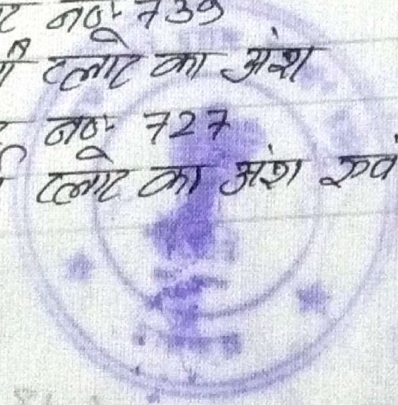 नं० 739
प्लाट का अंश
नं० 727
प्लाट का अंश एवं